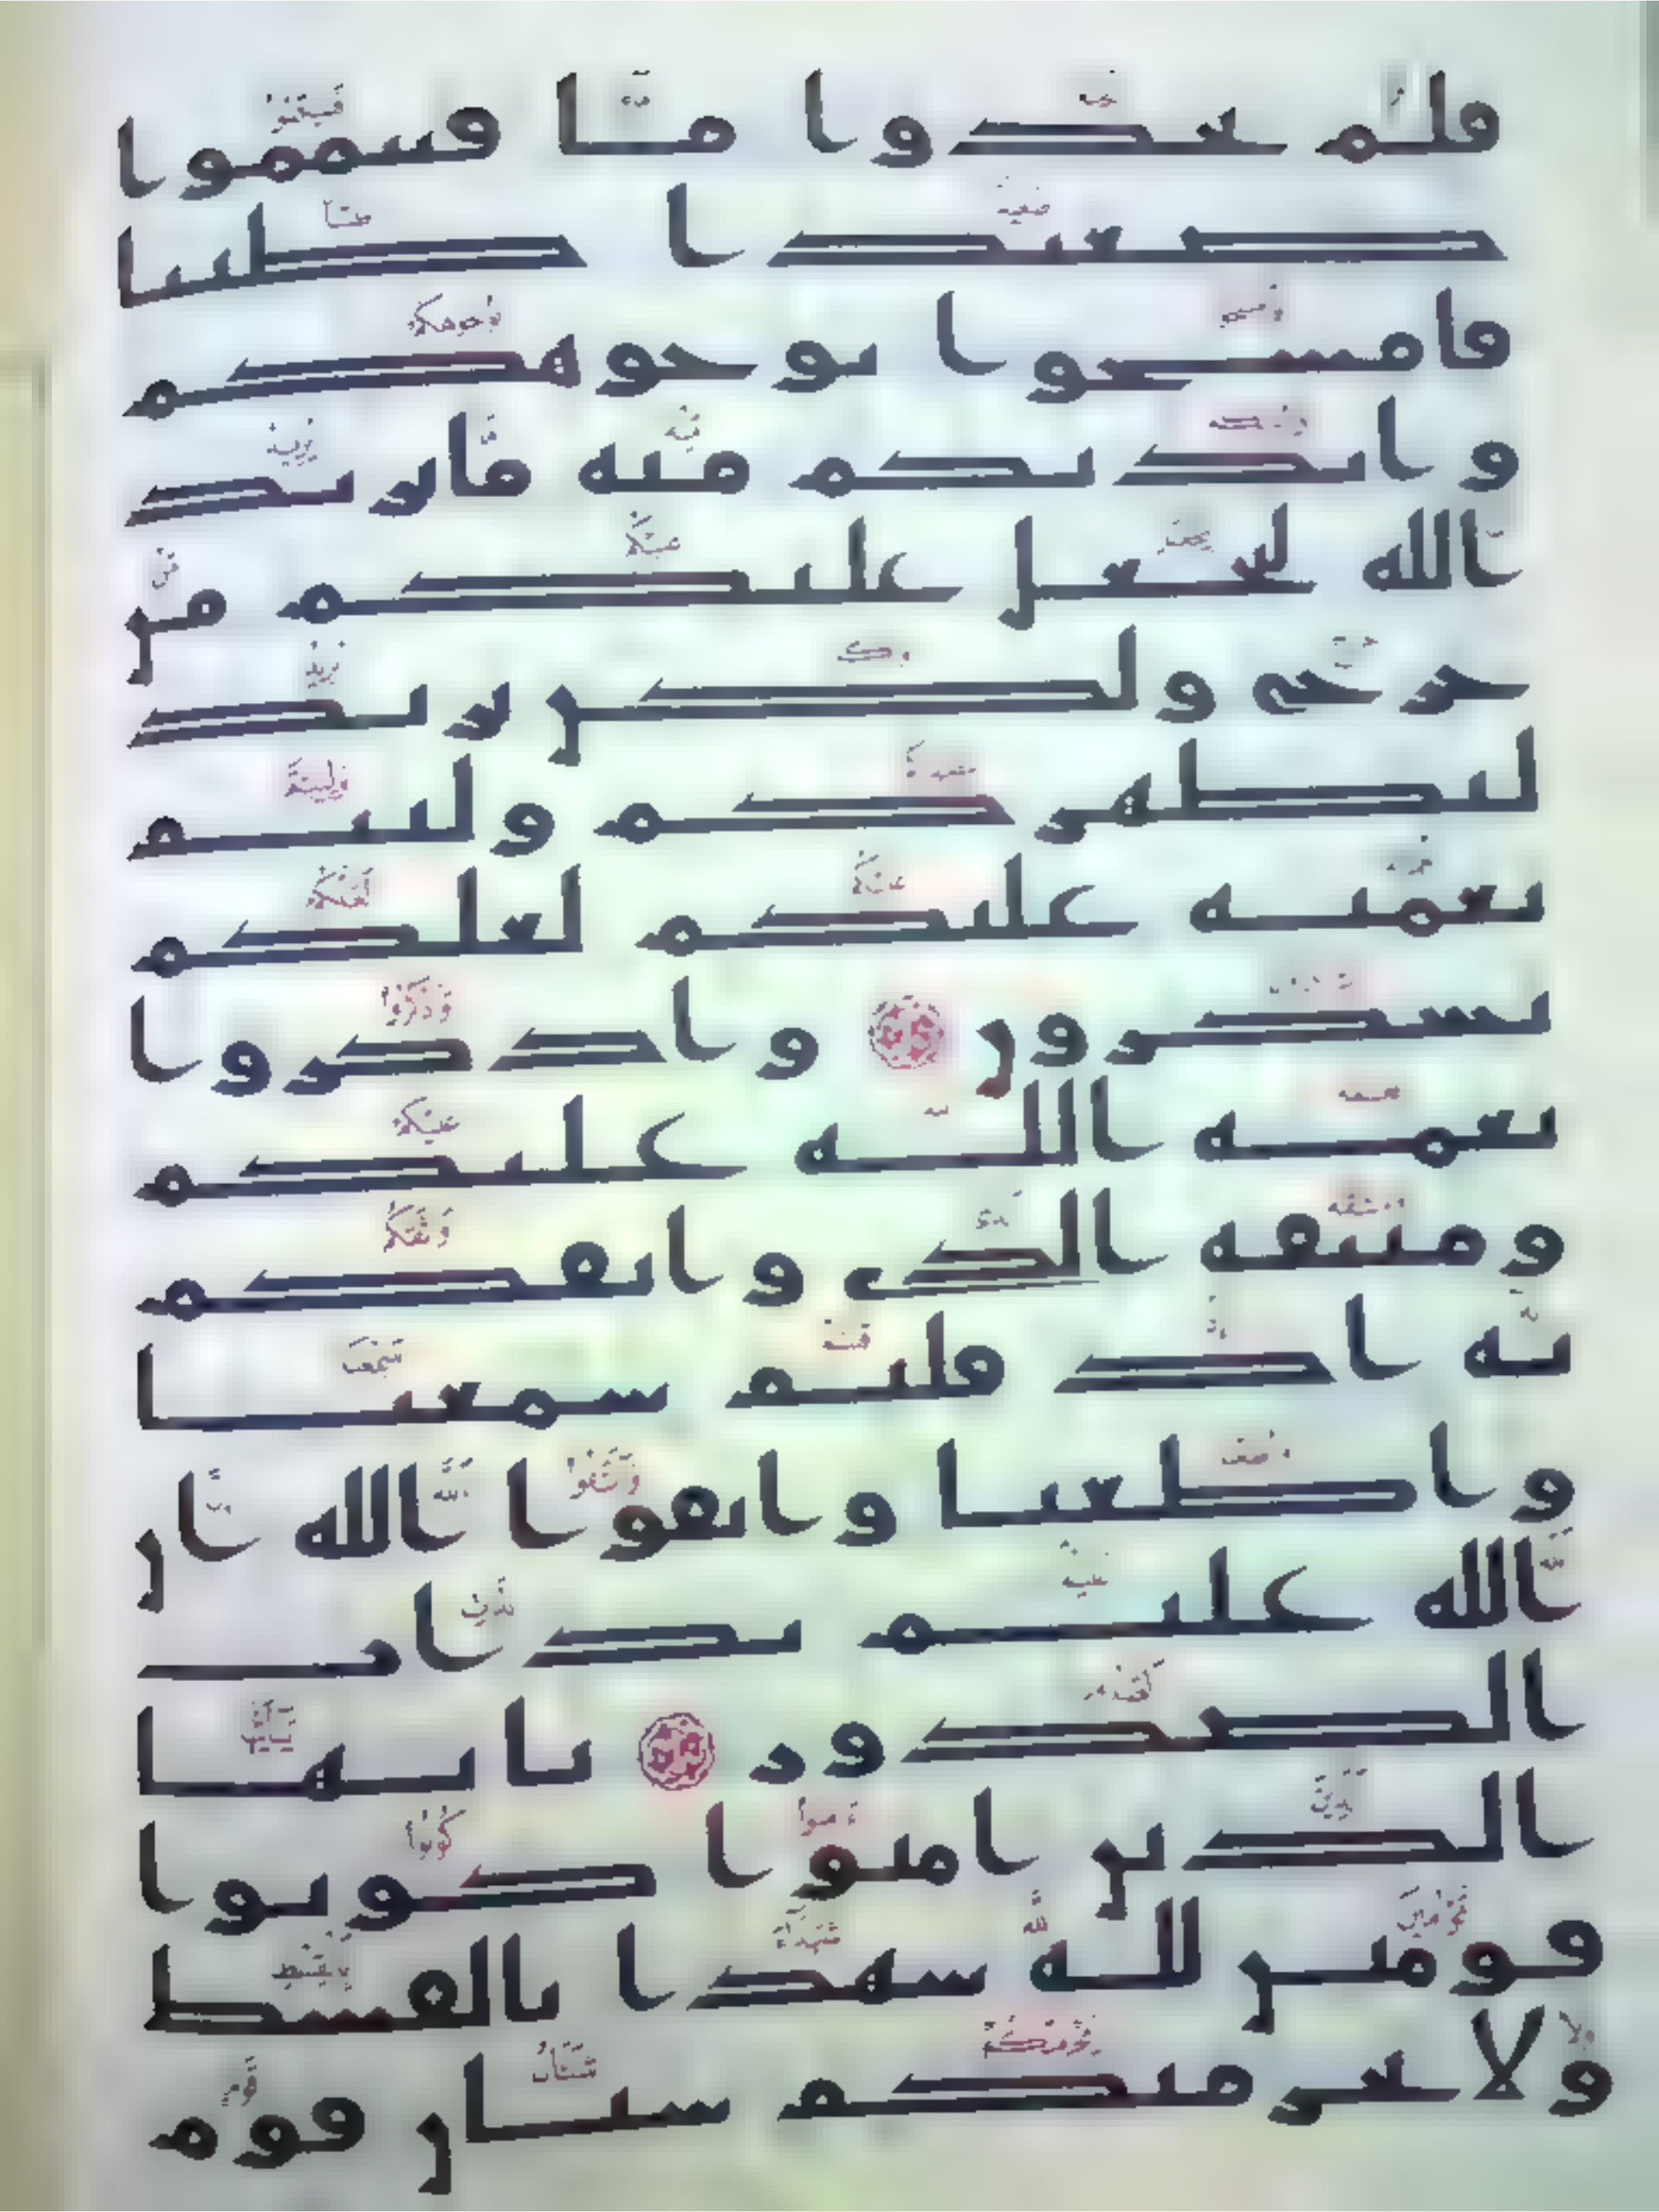 فلم تجدوا ما فتيمموا
صعيدا طيبا
فامسحوا بوجوهكم
وايديكم منه ما يريد
الله ليجعل عليكم من
حرج ولكن يريد
ليطهركم وليتم
نعمته عليكم لعلكم
تشكرون واذكروا
نعمة الله عليكم
وميثقه الذي واثقكم
به اذ قلتم سمعنا
واطعنا واتقوا الله ان
الله عليم بذات
الصدور يايها
الذين امنوا كونوا
قومين لله شهدا بالقسط
ولا يجرمنكم شنان قوم